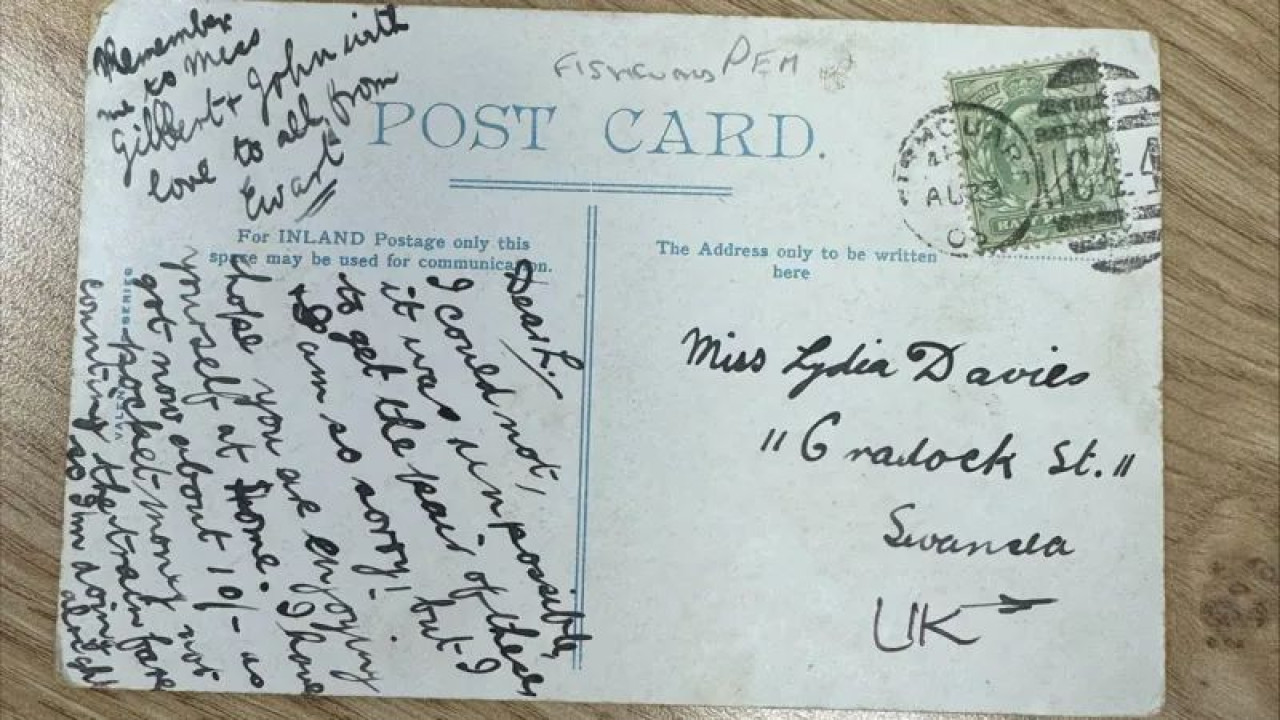 Remember
me to Miss
Gilbert + John with
love to all from
Ewart
PEM
POST CARD.
For INLAND Postage only this
space may be used for communication.
The Address only to be written
here
AU 23
Dear L.
I could not,
it was impossible,
to get the pair of these
I am so sorry! but I
hope you are enjoying
yourself at home. I have
got now about 10/- as
pocket-money not
counting the train fare
so I'm doing
alright
Miss Lydia Davies
"Cradock St."
Swansea
UK